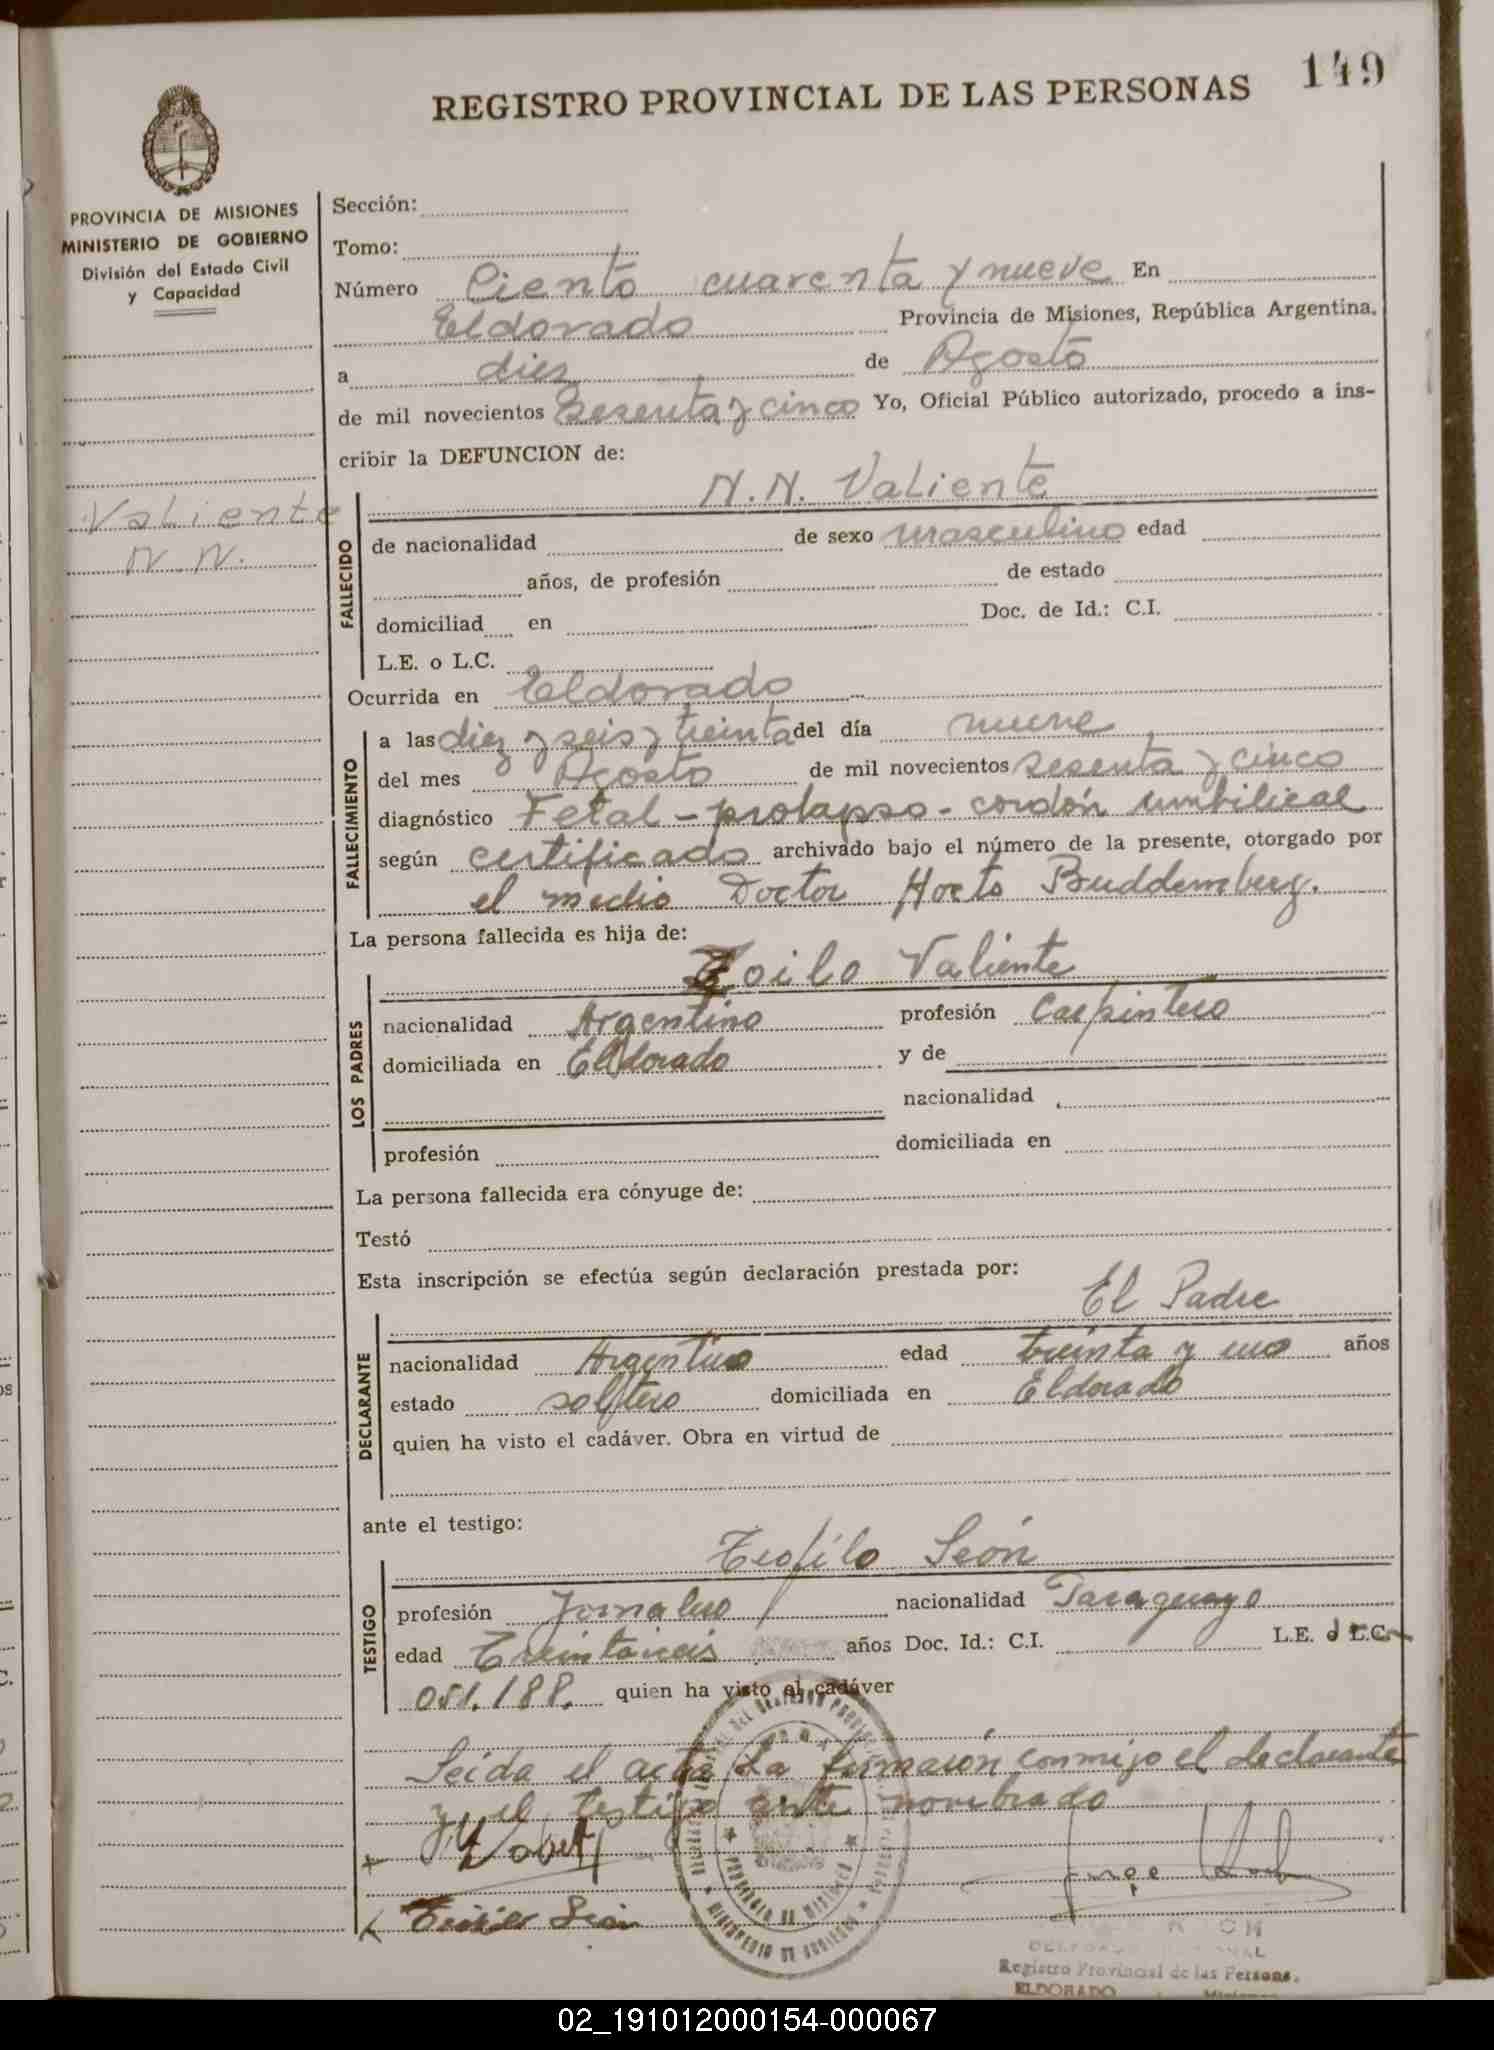 149
REGISTRO PROVINCIAL DE LAS PERSONAS
PROVINCIA DE MISIONES
MINISTERIO DE GOBIERNO
División del Estado Civil
y Capacidad
Valiente
N. N.
Sección:
Tomo:
Número Ciento cuarenta y nueve En
Eldorado Provincia de Misiones, República Argentina.
a diez de Agosto
de mil novecientos Sesenta y cinco Yo, Oficial Público autorizado, procedo a ins-
cribir la DEFUNCION de:
N. N. Valiente
FALLECIDO
de nacionalidad de sexo masculino edad
años, de profesión de estado
domiciliad en Doc. de Id.: C.I.
L.E. o L.C.
Ocurrida en Eldorado
FALLECIMIENTO
a las diez y seis y treinta del día nueve
del mes Agosto de mil novecientos sesenta y cinco
diagnóstico Fetal - prolapso - cordón umbilical
según certificado archivado bajo el número de la presente, otorgado por
el medio Doctor Horts Buddemberg.
La persona fallecida es hija de:
Zoilo Valiente
LOS PADRES
nacionalidad Argentino profesión Carpintero
domiciliada en Eldorado y de
nacionalidad
profesión domiciliada en
La persona fallecida era cónyuge de:
Testó
Esta inscripción se efectúa según declaración prestada por:
El Padre
DECLARANTE
nacionalidad Argentino edad treinta y uno años
estado soltero domiciliada en Eldorado
quien ha visto el cadáver. Obra en virtud de
ante el testigo:
Teofilo León
TESTIGO
profesión Jornalero nacionalidad Paraguayo
edad Treintaiseis años Doc. Id.: C.I. L.E. o L.C.
051.188. quien ha visto el cadáver
Leida el acta la firmaron conmijo el declarante
y el testigo ante nombrado
León
PROVINCIA DE MISIONES
MINISTERIO DE GOBIERNO
Registro Provincial de las Persons.
ELDORADO Misiones
02_191012000154-000067